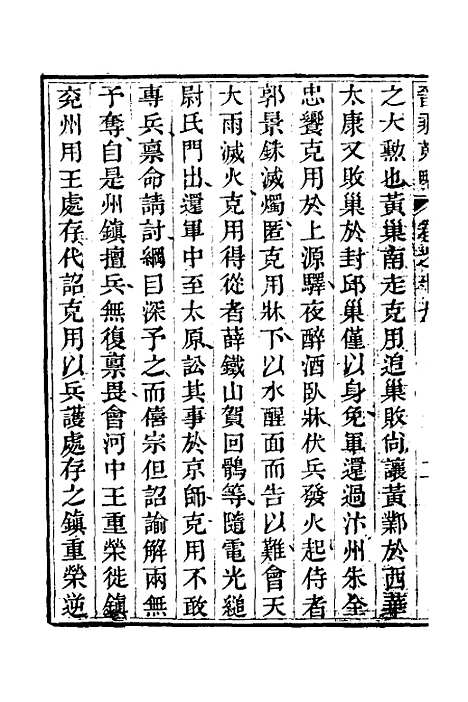 之大勲也黃巢南走克用追巢敗尙讓黃鄴於西華
太康又敗巢於封邱巢僅以身免軍還過汴州朱全
忠饗克用於上源驛夜醉酒臥牀伏兵發火起侍者
郭景銖滅燭匿克用牀下以水醒面而告以難會天
大雨滅火克用得從者薛鐵山賀回鶻等隨電光縋
尉氏門出還軍中至太原訟其事於京師克用不敢
專兵稟命請討綱目深予之而僖宗但詔諭解兩無
予奪自是州鎮擅兵無復稟畏會河中王重榮徙鎮
兖州用王處存代詔克用以兵護處存之鎮重榮逆